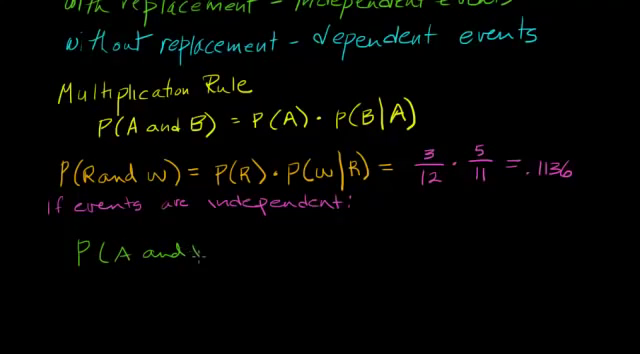 with replacement - independent events
without replacement - dependent events
Multiplication Rule
P(A and B) = P(A) · P(B|A)
P(R and W) = P(R) · P(W|R) = 3/12 · 5/11 = .1136
If events are independent:
P(A and